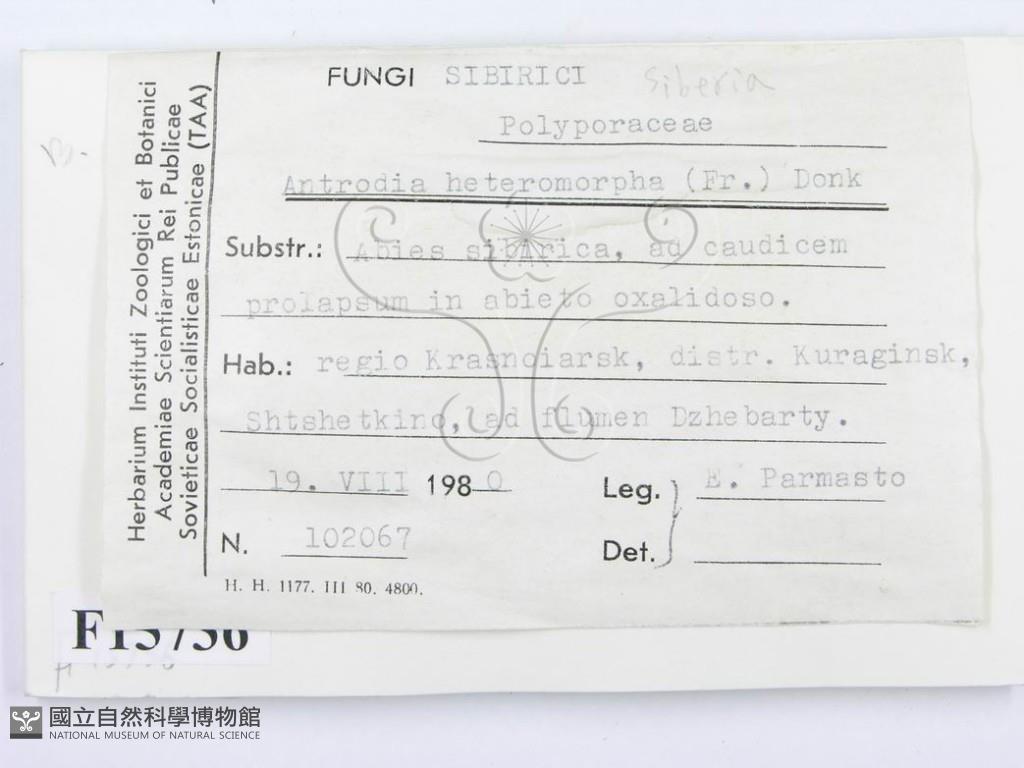 Herbarium Instituti Zoologici et Botanici
Academiae Scientiarum Rei Publicae
Sovieticae Socialisticae Estonicae (TAA)
FUNGI SIBIRICI Siberia
Polyporaceae
Antrodia heteromorpha (Fr.) Donk
Substr.: Abies sibirica, ad caudicem
prolapsum in abieto oxalidoso.
Hab.: regio Krasnoiarsk, distr. Kuraginsk,
Shtshetkino, ad flumen Dzhebarty.
19. VIII 1980
Leg. E. Parmasto
N. 102067
Det.
H. H. 1177. III 80. 4800.
國立自然科學博物館
NATIONAL MUSEUM OF NATURAL SCIENCE